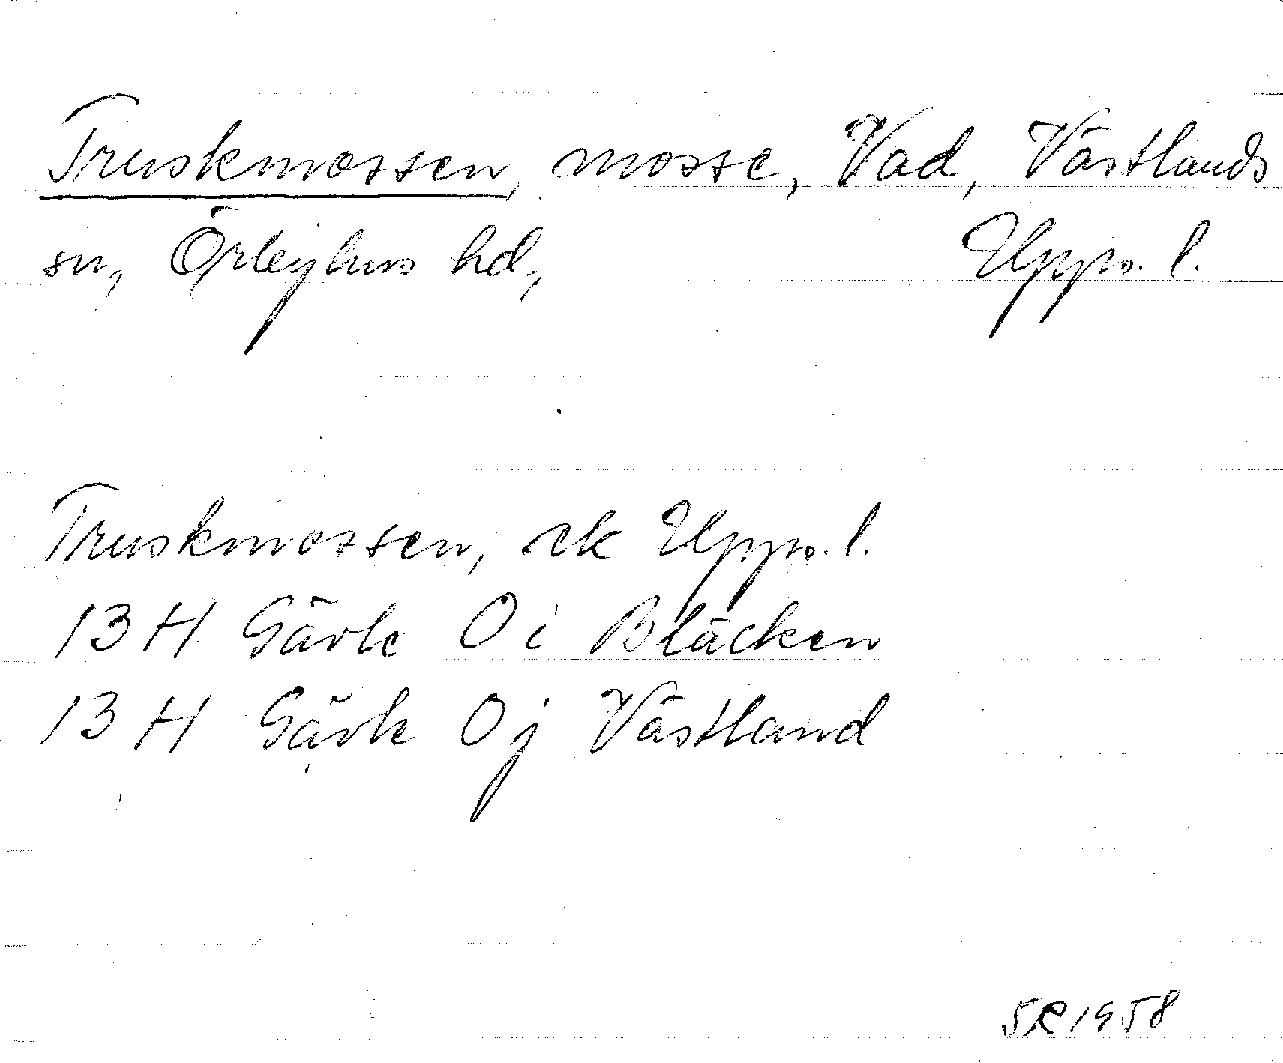 Truskmossen, mosse, Vad, Västlands
sn, Örbyhus hd, Upps. l.
Truskmossen, ek Upps. l.
13 H Gävle 0 i Bläcken
13 H Gävle 0 j Västland
SR 1958